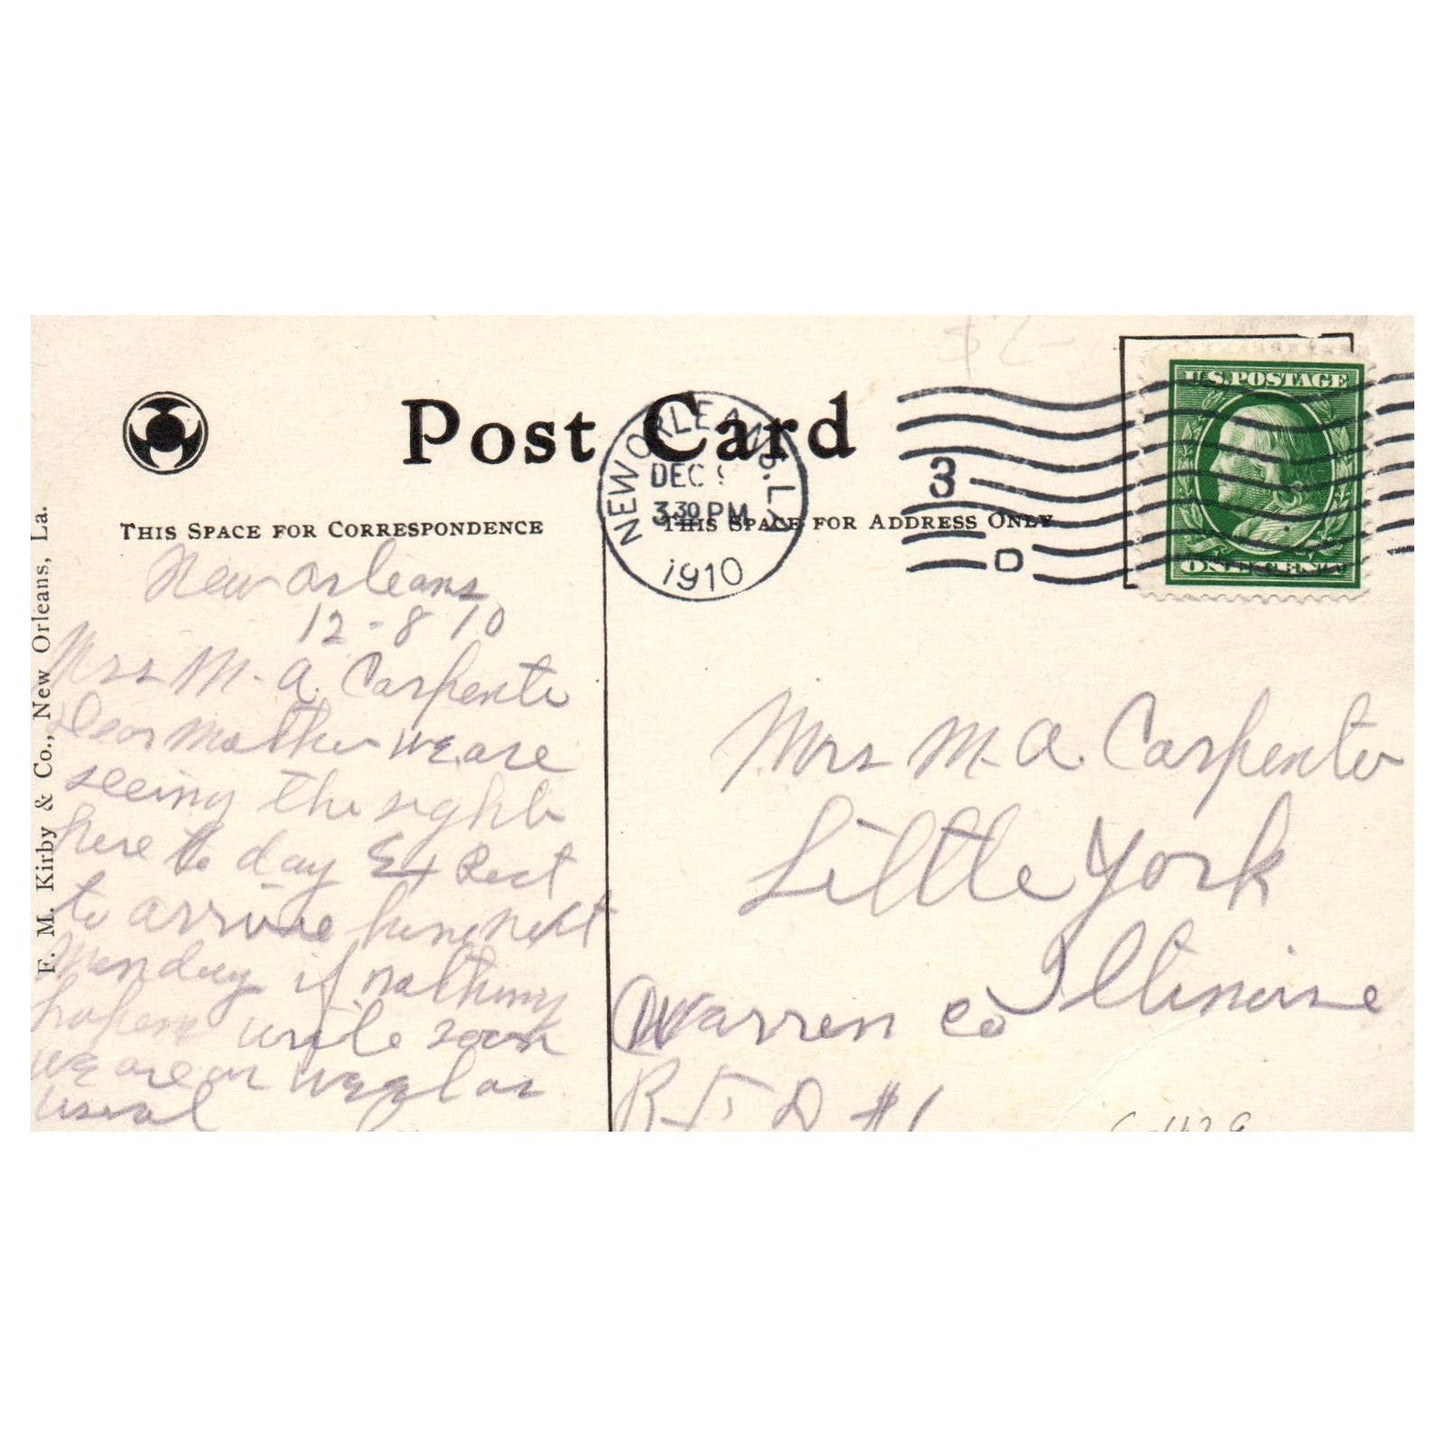 Post Card
THIS SPACE FOR CORRESPONDENCE
THIS SPACE FOR ADDRESS ONLY
F. M. Kirby & Co., New Orleans, La.
NEW ORLEANS, LA
DEC
3 30 PM
1910
3
D
U.S. POSTAGE
ONE CENT
New Orleans
12-8 10
Mrs M. A. Carpenter
Dear Mother we are
seeing the sights
here to day Expect
to arrive home next
Monday if nothing
hapens write soon
we are as well as
usual
Mrs M. A. Carpenter
Little York
Illinoise
Warren Co
R F D #1